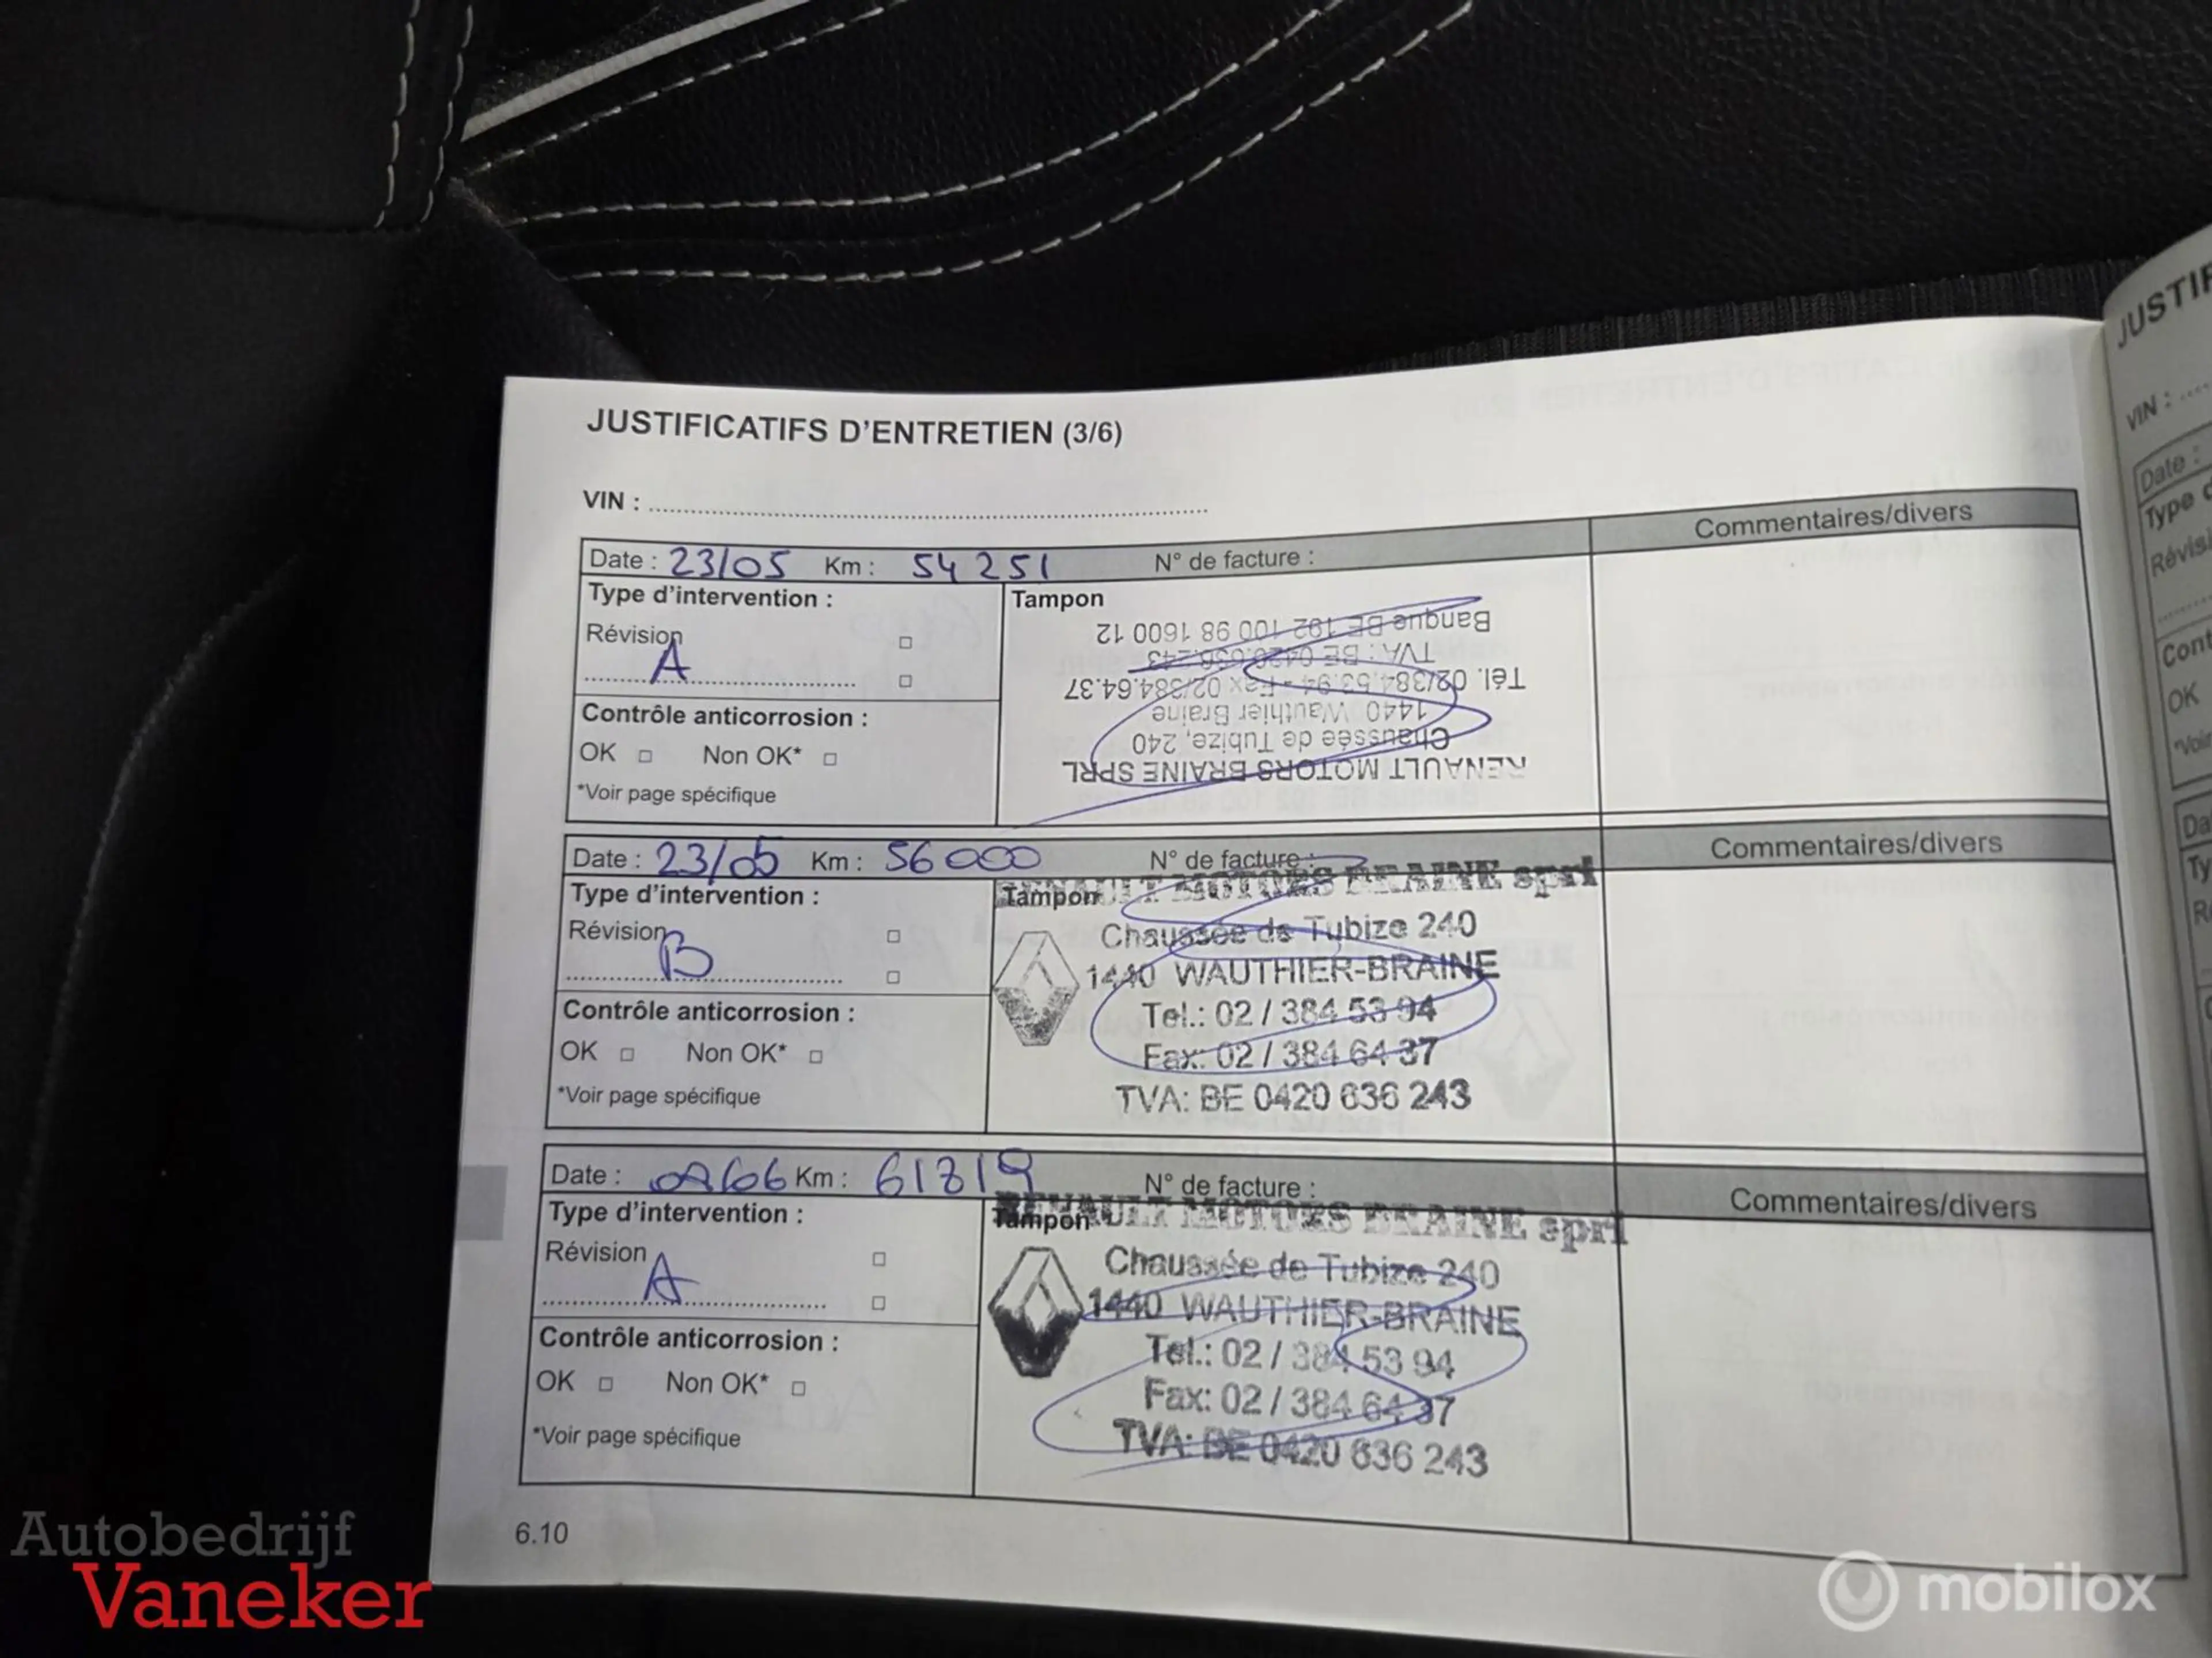 JUSTIFICATIFS D'ENTRETIEN (3/6)
VIN :
Date : 23/05 Km : 54 251 N° de facture : Commentaires/divers
Type d'intervention :
Révision
A
Contrôle anticorrosion :
OK Non OK*
*Voir page spécifique
Tampon
RENAULT MOTORS BRAINE SPRL
Chaussée de Tubize, 240
1440 Wauthier Braine
Tél. 02/384.53.94 - Fax 02/384.64.37
TVA : BE 0420.636.243
Banque BE 192 100 98 1600 12
Date : 23/05 Km : 56000 N° de facture : Commentaires/divers
Type d'intervention :
Révision
B
Contrôle anticorrosion :
OK Non OK*
*Voir page spécifique
Tampon
RENAULT MOTORS BRAINE sprl
Chaussée de Tubize 240
1440 WAUTHIER-BRAINE
Tel.: 02 / 384 53 94
Fax: 02 / 384 64 37
TVA: BE 0420 636 243
Date : Km : 61819 N° de facture : Commentaires/divers
Type d'intervention :
Révision
A
Contrôle anticorrosion :
OK Non OK*
*Voir page spécifique
Tampon
RENAULT MOTORS BRAINE sprl
Chaussée de Tubize 240
1440 WAUTHIER-BRAINE
Tel.: 02 / 384 53 94
Fax: 02 / 384 64 37
TVA: BE 0420 636 243
6.10
JUSTIF
VIN :
Date :
Type d
Révisi
OK
Autobedrijf
Vaneker
mobilox